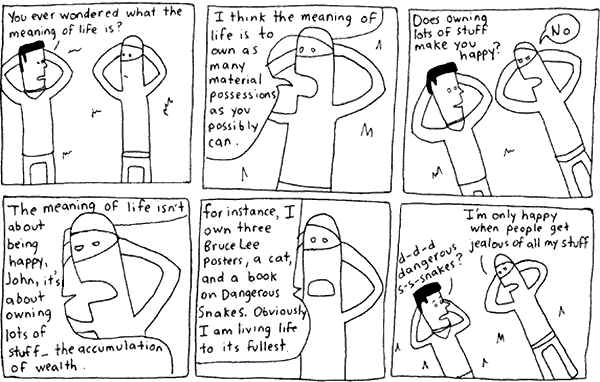 You ever wondered what the
meaning of life is?
I think the meaning of
life is to
own as
many
material
possessions
as you
possibly
can.
Does owning
lots of stuff
make you
happy?
No
The meaning of life isn't
about
being
happy,
John, it's
about
owning
lots of
stuff_ the accumulation
of wealth.
for instance, I
own three
Bruce Lee
posters, a cat,
and a book
on Dangerous
Snakes. Obviously
I am living life
to its fullest.
I'm only happy
when people get
jealous of all my stuff
d-d-d
dangerous
s-s-snakes?